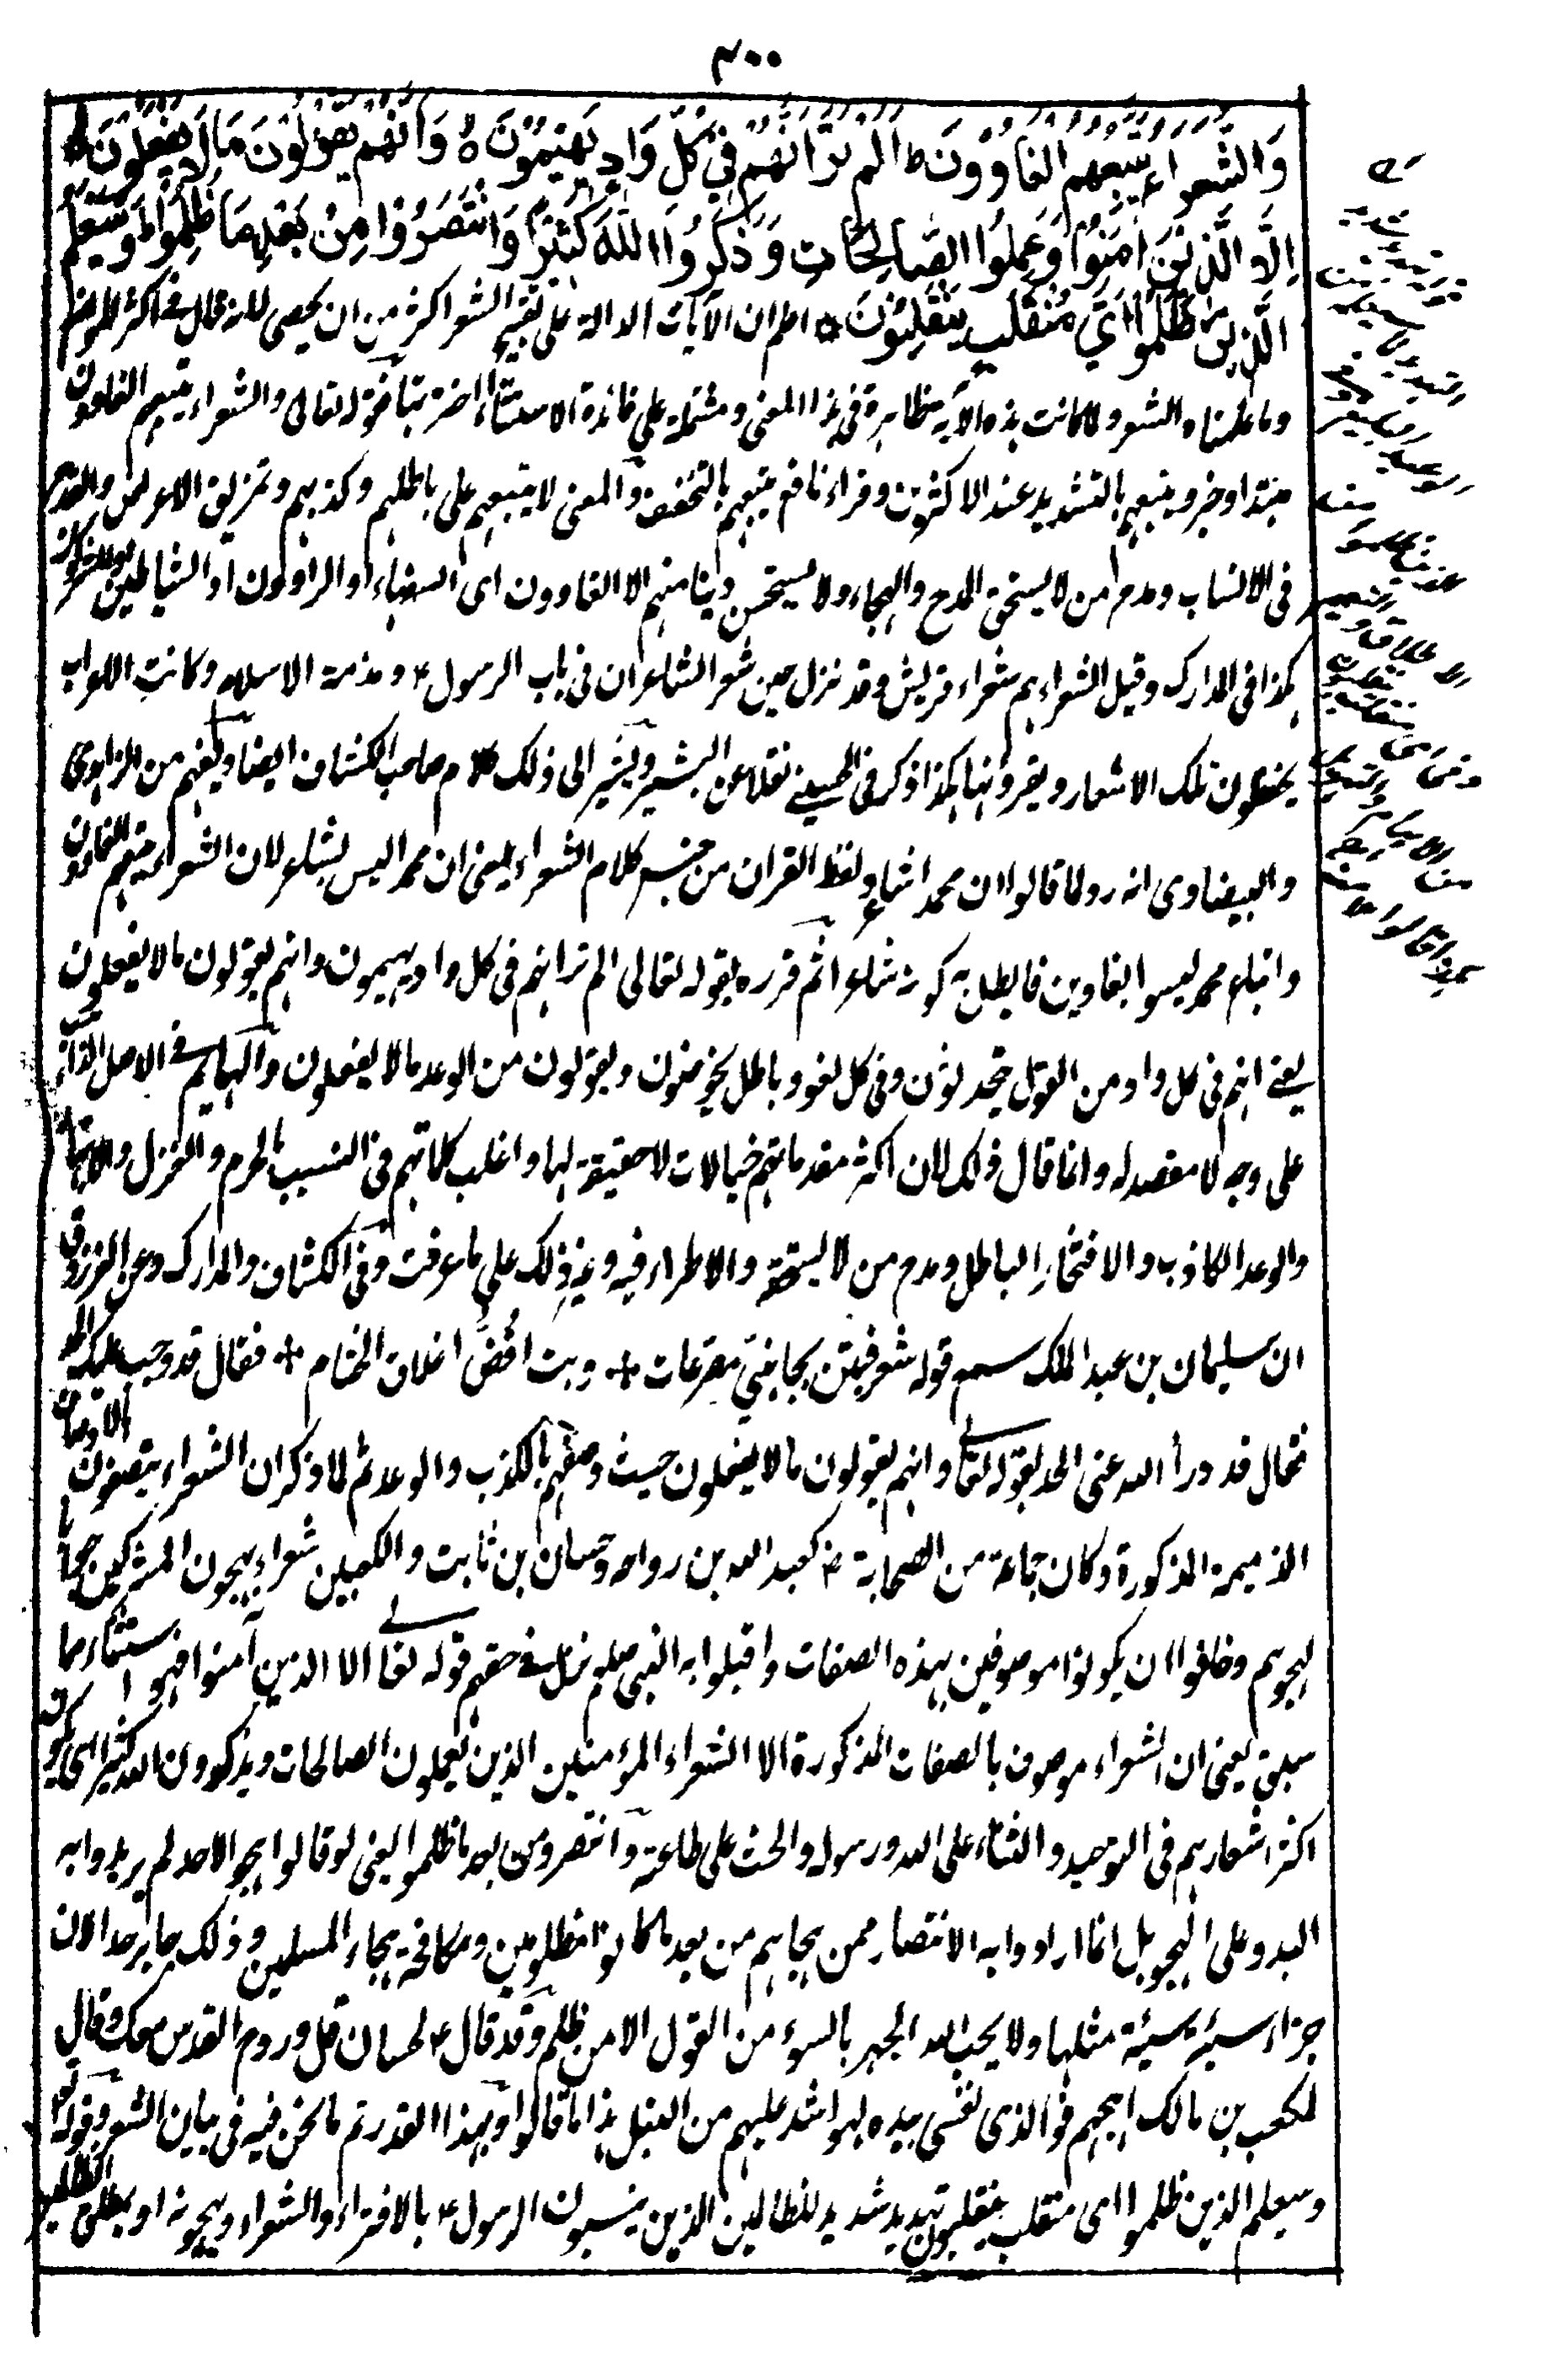 ۴۰۰
وَالشُّعَرَاءُ يَتَّبِعُهُمُ الْغَاوُونَ ط اَلَمْ تَرَ اَنَّهُمْ فِيْ كُلِّ وَادٍ يَهِيْمُوْنَ ه وَاَنَّهُمْ يَقُوْلُوْنَ مَا لَا يَفْعَلُوْنَ
اِلَّا الَّذِيْنَ اٰمَنُوْا وَعَمِلُوا الصَّالِحَاتِ وَذَكَرُوا اللّٰهَ كَثِيْرًا وَانْتَصَرُوْا مِنْ بَعْدِ مَا ظُلِمُوْا وَسَيَعْلَمُ
الَّذِيْنَ ظَلَمُوْا اَيَّ مُنْقَلَبٍ يَنْقَلِبُوْنَ اعلم ان الآيات الدالة على تقبيح الشعر اكثر من ان يحصى لانه قال فى اكثر المواضع
وما علمناه الشعر ولما كانت هذه الآية ظاهرة فى هذا المعنى ومشتملة على فائدة الاستثناء اخترتها فقوله تعالى والشعراء يتبعهم الغاوون
مبتدا وخبر ويتبعهم بالتشديد عند الاكثرين وقراء نافع يتبعهم بالتخفيف والمعنى لا يتبعهم على باطلهم وكذبهم وتمزيق الاعراض والقدح
فى الانساب ومدح من لا يستحق المدح والهجاء ولا يستحسن ذلك منهم الا الغاوون اى السفهاء او الراوون او الشياطين او المشركون
كذا فى المدارك وقيل الشعراء هم شعراء قريش وقد نزل حين شعر الشاعران فى باب الرسول ء ومذمة الاسلام وكانت الاعراب
يحفظون تلك الاشعار ويقرونها هكذا ذكر فى الحسينى نقلا عن البشير ويشير الى ذلك كلام صاحب الكشاف ايضا ويفهم من الزاهدى
والبيضاوى انه رد لما قالوا ان محمدا شاعر ولفظ القران من جنس كلام الشعراء يعنى ان محمدا ليس بشاعر لان الشعراء يتبعهم الغاوون
واتباع محمد ليسوا بغاوين فابطل به كونه شاعرا ثم قرره بقوله تعالى الم تر انهم فى كل واد يهيمون وانهم يقولون ما لا يفعلون
يعنى انهم فى كل واد من القول يتحدثون وفى كل لغو وباطل يخوضون ويقولون من الوعد ما لا يفعلون والهائم فى الاصل الذاهب
على وجه لا مقصد له وانما قال ذلك لان اكثر مقدماتهم خيالات لا حقيقة لها واغلب كلماتهم فى النسيب بالحرم والغزل والابتهار
والوعد الكاذب والافتخار الباطل ومدح من لا يستحقه والاطراء فيه وغير ذلك على ما عرفت وفى الكشاف والمدارك وعن الفرزدق
ان سليمان بن عبد الملك سمع قوله شعر فبتن بجانبي مصرعات + وبت افض اغلاق الختام + فقال قد وجب عليك الحد
فقال قد درأ الله عنى الحد بقوله تعالى وانهم يقولون ما لا يفعلون حيث وصفهم بالكذب والوعد ثم لما ذكر ان الشعراء يتصفون بالاوصاف
الذميمة المذكورة وكان جماعة من الصحابة رض كعبد الله بن رواحه وحسان بن ثابت والكعبين شعراء يهجون المشركين
لهجوهم وخافوا ان يكونوا موصوفين بهذه الصفات واقبلوا به النبى صلعم نزل فى حقهم قوله تعالى الا الذين آمنوا فهو استثناء مما
سبق يعنى ان الشعراء موصوف بالصفات المذكورة الا الشعراء المؤمنين الذين يعملون الصالحات ويذكرون الله كثيرا اى يكون
اكثر اشعارهم فى التوحيد والثناء على الله ورسوله والحث على طاعته وانتصروا من بعد ما ظلموا يعنى لو قالوا هجو الاحد لم يريدوا به
البدو على الهجو بل انما ارادوا به الانتصار ممن هجاهم من بعد ما كانوا مظلومين ومكافحة هجاء المسلمين وذلك جايز حد الان
جزاء سيئة سيئة مثلها ولا يحب الله الجهر بالسوء من القول الا من ظلم وقد قال ء لحسان قل وروح القدس معك وقال
لكعب بن مالك اهجهم فوالذى نفسى بيده لهو اشد عليهم من النبل هذا ما قالوا وبهذا القدر تم ما نحن فيه فى بيان الشعر وقوله تعالى
وسيعلم الذين ظلموا اى منقلب ينقلبون تهديد شديد للظالمين الذين ينسبون الرسول ء بالافتراء والشعراء ويهجونه او